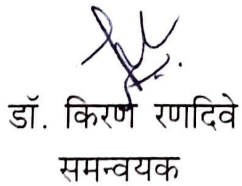 डॉ. किरण रणदिवे
समन्वयक